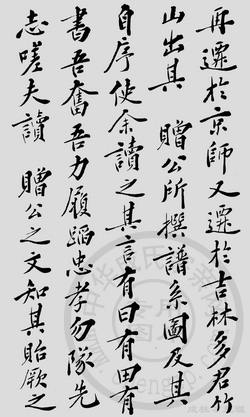 再遷於京師又遷於吉林多君竹
山出其 贈公所撰譜系圖及其
自序使余讀之其言有曰有田有
書吾奮吾力履蹈忠孝勿隊先
志嗟夫讀 贈公之文知其貽厥之